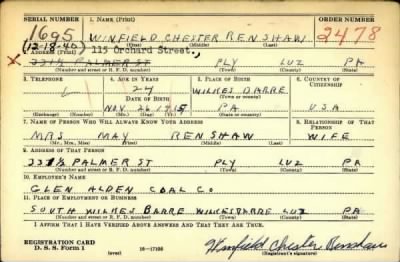 SERIAL NUMBER 1. NAME (Print) ORDER NUMBER
1695 WINFIELD CHESTER RENSHAW 2478
(First) (Middle) (Last)
(12-18-40) 115 Orchard Street,
2. ADDRESS (Print)
x 331½ PALMER ST PLY LUZ PA
(Number and street or R. F. D. number) (Town) (County) (State)
3. TELEPHONE 4. AGE IN YEARS 5. PLACE OF BIRTH 6. COUNTRY OF CITIZENSHIP
24 WILKES BARRE
DATE OF BIRTH (Town or county)
NOV 26 1915 PA U.S.A
(Exchange) (Number) (Mo.) (Day) (Yr.) (State or country)
7. NAME OF PERSON WHO WILL ALWAYS KNOW YOUR ADDRESS 8. RELATIONSHIP OF THAT PERSON
MRS MAY RENSHAW WIFE
(Mr., Mrs., Miss) (First) (Middle) (Last)
9. ADDRESS OF THAT PERSON
331½ PALMER ST PLY LUZ PA
(Number and street or R. F. D. number) (Town) (County) (State)
10. EMPLOYER'S NAME
GLEN ALDEN COAL CO
11. PLACE OF EMPLOYMENT OR BUSINESS
SOUTH WILKES BARRE WILKESBARRE LUZ PA
(Number and street or R. F. D. number) (Town) (County) (State)
I AFFIRM THAT I HAVE VERIFIED ABOVE ANSWERS AND THAT THEY ARE TRUE.
REGISTRATION CARD
D. S. S. Form 1 16-17105 Winfield Chester Renshaw
(over) (Registrant's signature)